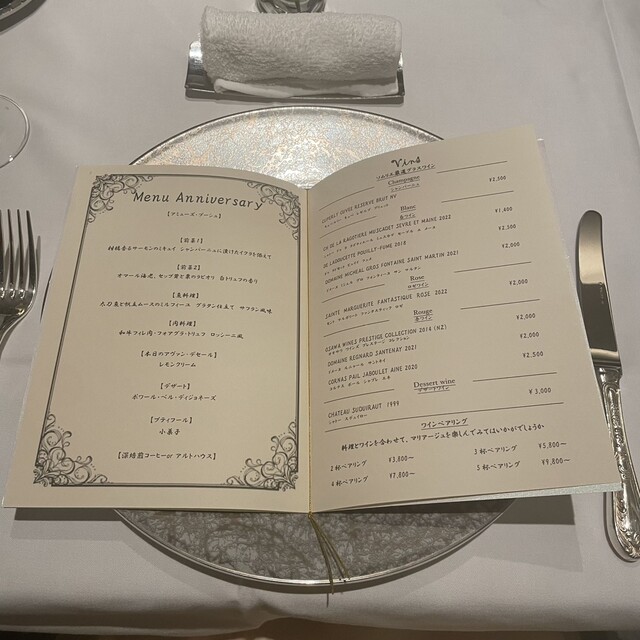 Menu Anniversary
【アミューズ・ブーシュ】
【前菜1】
柑橘香るサーモンのミキュイ シャンパーニュに漬けたイクラを添えて
【前菜2】
オマール海老、セップ茸と栗のラビオリ 白トリュフの香り
【魚料理】
太刀魚と帆立ムースのミルフィーユ グラタン仕立て サフラン風味
【肉料理】
和牛フィレ肉・フォアグラ・トリュフ ロッシーニ風
【本日のアヴァン・デセール】
レモンクリーム
【デザート】
ポワール・ベル・ディジョネーズ
【プティフール】
小菓子
【深焙煎コーヒーor アルトハウス】
Vins
ソムリエ厳選グラスワイン
Champagne
シャンパーニュ
CUVEE RESERVE BRUT NV ¥2,500
Blanc
白ワイン
CH DE LA RAGOTIERE MUSCADET SEVRE ET MAINE 2022 ¥1,600
DE LADOUCETTE POUILLY-FUME 2018 ¥2,500
DOMAINE MICHEAL GROS FONTAINE SAINT MARTIN 2021 ¥2,000
Rose
ロゼワイン
SAINTE MARGUERITE FANTASTIQUE ROSE 2022 ¥2,000
Rouge
赤ワイン
OSAWA WINES PRESTIGE COLLECTION 2014 (NZ) ¥2,000
オオサワ ワインズ プレステージ コレクション
DOMAINE REGNARD SANTENAY 2021 ¥2,000
CORNAS PAUL JABOULET AINE 2020 ¥2,500
Dessert wine
デザートワイン
CHATEAU SUDUIRAUT 1999 ¥ 3,000
ワインペアリング
料理とワインを合わせて、マリアージュを楽しんでみてはいかがでしょうか
2杯ペアリング ¥3,800ー 3杯ペアリング ¥5,800ー
4杯ペアリング ¥7,800ー 5杯ペアリング ¥9,800ー